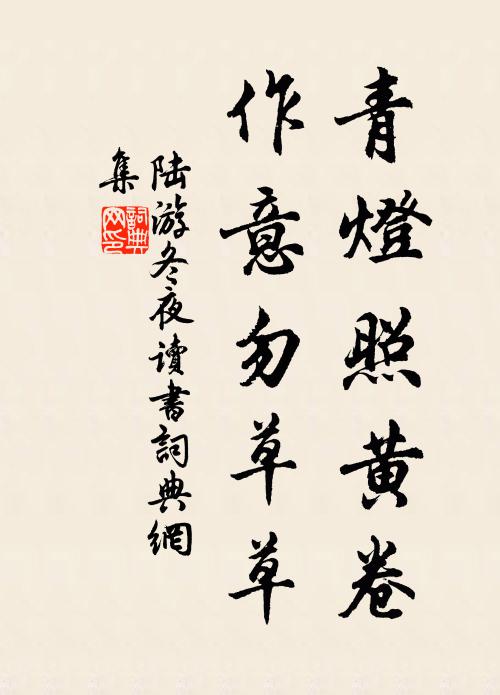 青燈照黃卷
作意勿草草
陸游冬夜讀書詞典網
集
詞典
网印